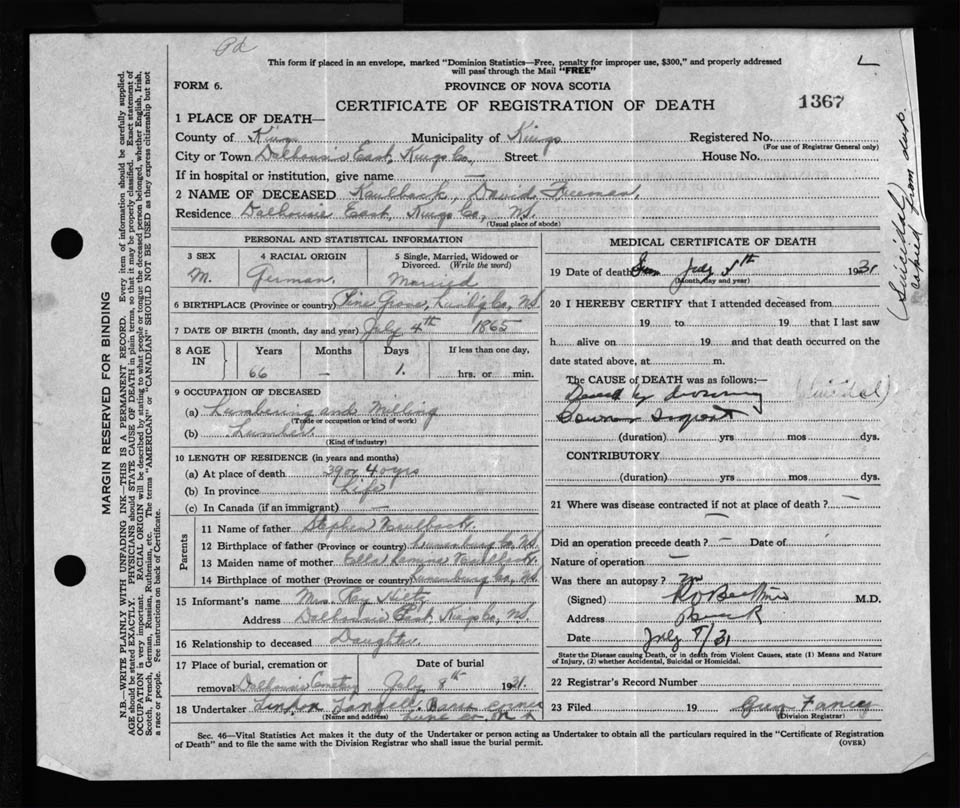 Pd
This form if placed in an envelope, marked "Dominion Statistics—Free, penalty for improper use, $300," and properly addressed
will pass through the Mail "FREE"
FORM 6.
PROVINCE OF NOVA SCOTIA
CERTIFICATE OF REGISTRATION OF DEATH
1367
1 PLACE OF DEATH—
County of Kings Municipality of Kings Registered No.
(For use of Registrar General only)
City or Town Dalhousie East, Kings Co., Street House No.
If in hospital or institution, give name —
2 NAME OF DECEASED Kaulback, David Freeman,
Residence Dalhousie East, Kings Co, NS.
(Usual place of abode)
(Suicidal)
copied from dup.
MARGIN RESERVED FOR BINDING
N.B.—WRITE PLAINLY WITH UNFADING INK—THIS IS A PERMANENT RECORD. Every item of information should be carefully supplied.
AGE should be stated EXACTLY. PHYSICIANS should STATE CAUSE OF DEATH in plain terms, so that it may be properly classified. Exact statement of
OCCUPATION is very important. RACIAL ORIGIN will be described by stating to what people or tongue the deceased person belonged, whether English, Irish,
Scotch, French, German, Russian, Ruthenian, etc. The terms "AMERICAN" or "CANADIAN" SHOULD NOT BE USED as they express citizenship but not
a race or people. Fee instructions on back of Certificate.
PERSONAL AND STATISTICAL INFORMATION
3 SEX 4 RACIAL ORIGIN 5 Single, Married, Widowed or
Divorced. (Write the word)
M. German. Married
6 BIRTHPLACE (Province or country) Pine Grove, Lun'b'g Co, NS
7 DATE OF BIRTH (month, day and year) July 4th 1865
8 AGE IN Years Months Days If less than one day,
66 — 1. hrs. or min.
9 OCCUPATION OF DECEASED
(a) Lumbering and Milling
(Trade or occupation or kind of work)
(b) Lumber.
(Kind of industry)
10 LENGTH OF RESIDENCE (in years and months)
(a) At place of death 39 or 40 yrs
(b) In province Life
(c) In Canada (if an immigrant) —
Parents
11 Name of father Stephen Kaulback.
12 Birthplace of father (Province or country) Lunenburg Co, NS.
13 Maiden name of mother Ella Kaulback.
14 Birthplace of mother (Province or country) Lunenburg Co, NS.
15 Informant's name Mrs. Ray
Address Dalhousie East, Kings Co, NS.
16 Relationship to deceased Daughter.
17 Place of burial, cremation or Date of burial
removal Dalhousie Cemetery July 8th 1931.
18 Undertaker Barss Corner
(Name and address) Lune Co. N S
MEDICAL CERTIFICATE OF DEATH
19 Date of death July 5th 1931
(Month, day and year)
20 I HEREBY CERTIFY that I attended deceased from
19 to 19 that I last saw
h alive on 19 and that death occurred on the
date stated above, at m.
The CAUSE OF DEATH was as follows:—
Death by drowning (Suicidal)
(duration) yrs mos dys.
CONTRIBUTORY
(duration) yrs mos dys.
21 Where was disease contracted if not at place of death? —
Did an operation precede death? — Date of
Nature of operation —
Was there an autopsy? no
(Signed) M.D.
Address
Date July 8/31
State the Disease causing Death, or in death from Violent Causes, state (1) Means and Nature
of Injury, (2) whether Accidental, Suicidal or Homicidal.
22 Registrar's Record Number
23 Filed 19
(Division Registrar)
Sec. 46—Vital Statistics Act makes it the duty of the Undertaker or person acting as Undertaker to obtain all the particulars required in the "Certificate of Registration
of Death" and to file the same with the Division Registrar who shall issue the burial permit. (OVER)